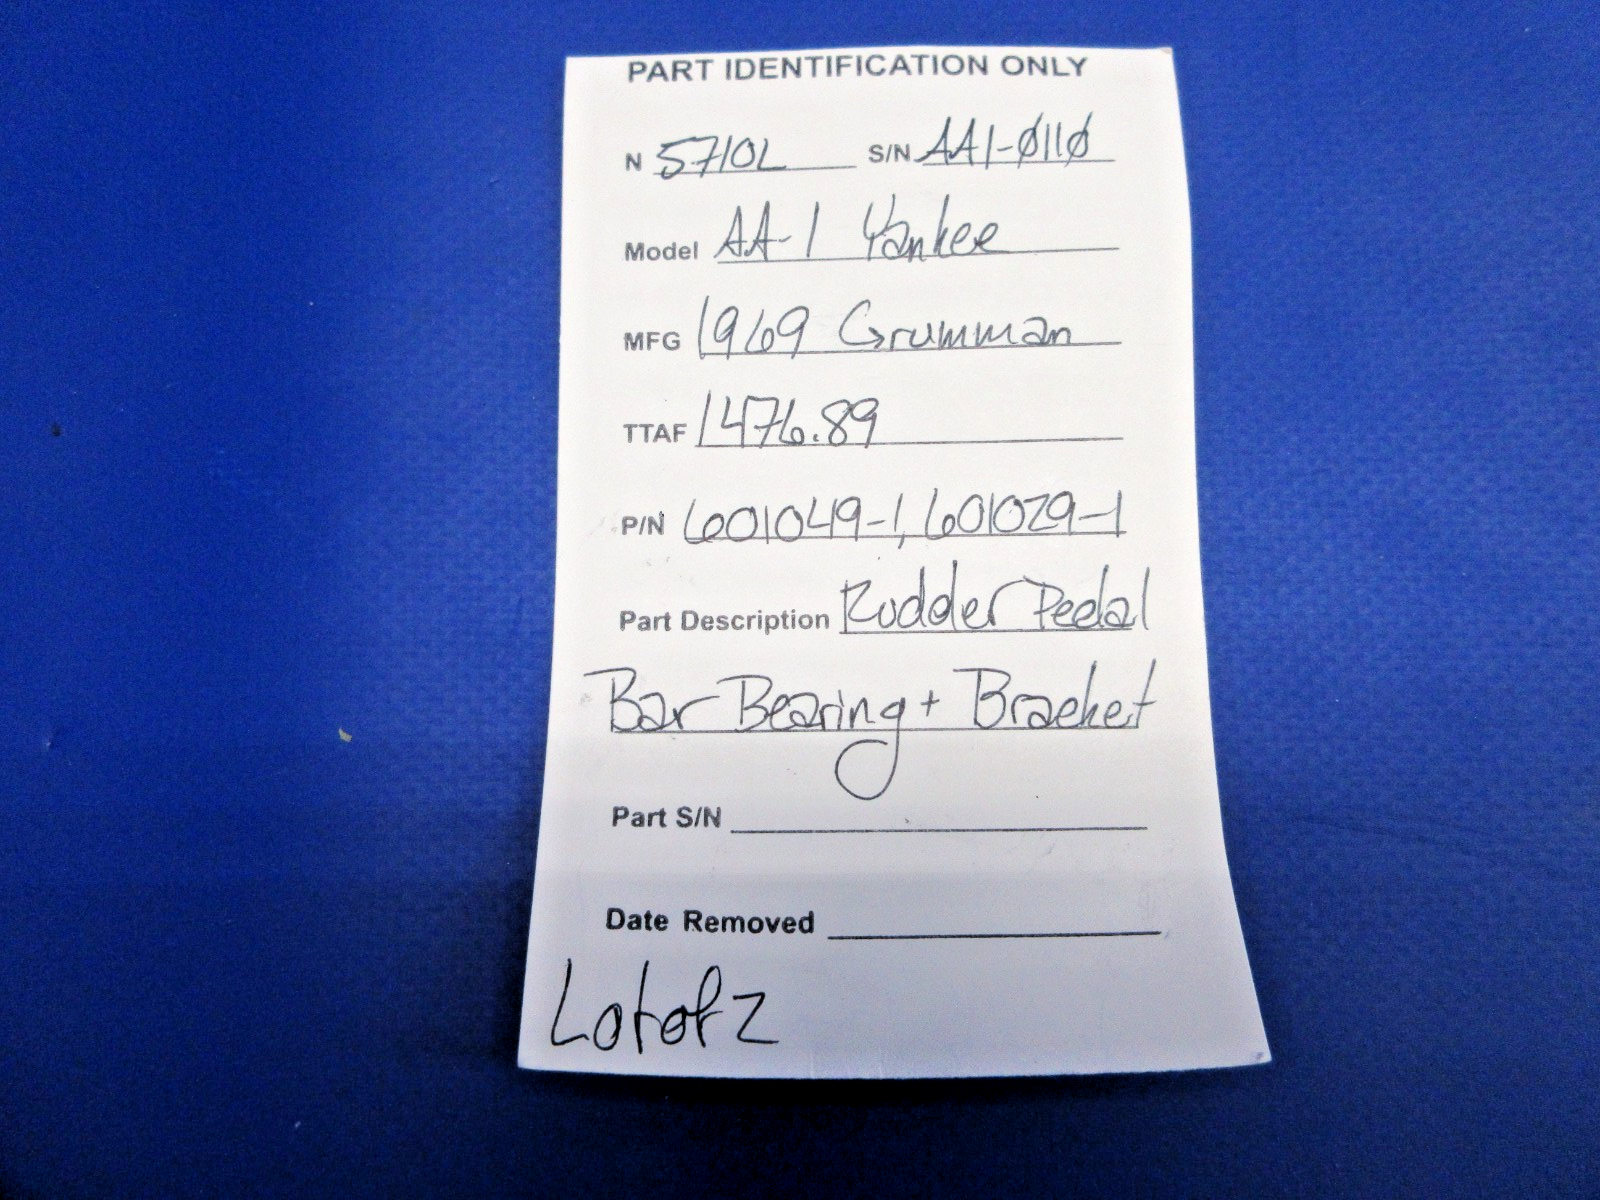 PART IDENTIFICATION ONLY
N 5710L S/N AA1-0110
Model AA-1 Yankee
MFG 1969 Grumman
TTAF 1476.89
P/N 601049-1, 601029-1
Part Description Rudder Pedal
Bar Bearing + Bracket
Part S/N
Date Removed
Lot of 2